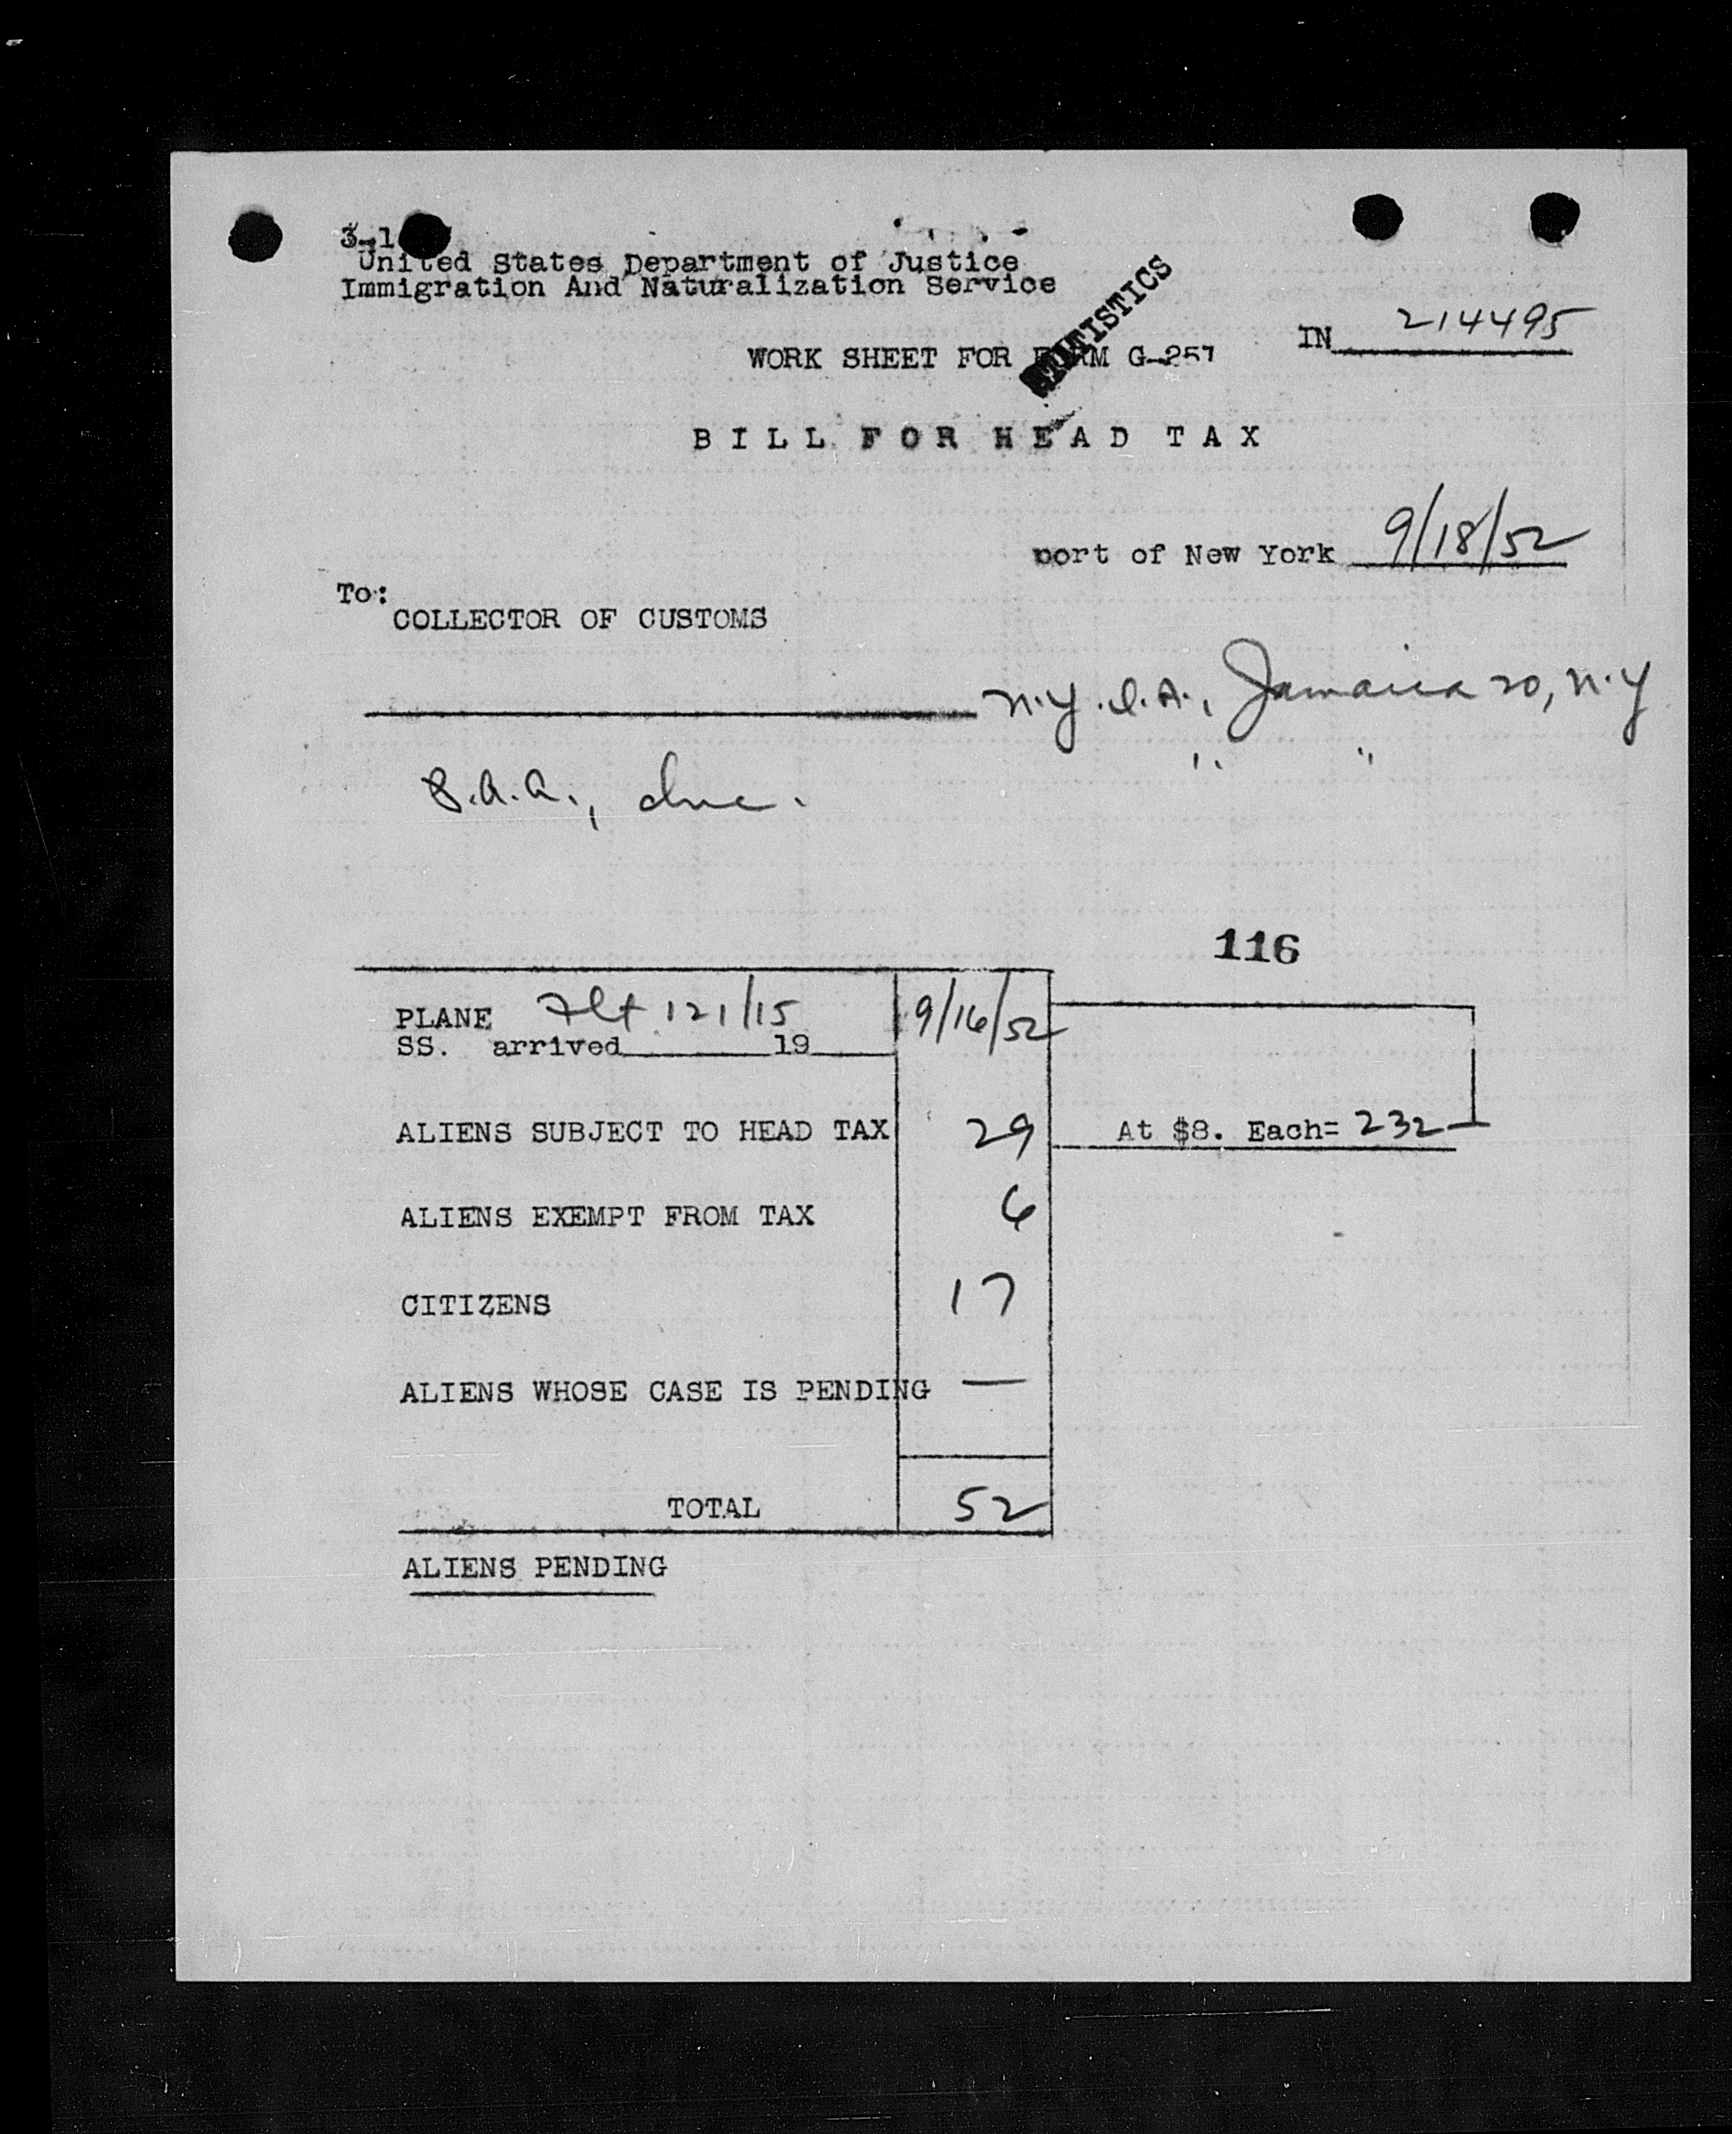 3-1
United States Department of Justice
Immigration And Naturalization Service
STATISTICS
IN 214495
WORK SHEET FOR FORM G-257
BILL FOR HEAD TAX
port of New York 9/18/52
To:
COLLECTOR OF CUSTOMS
N.Y.I.A., Jamaica 20, N.Y
" "
Inc.
116
PLANE Flt 121/15 9/16/52
SS. arrived 19
ALIENS SUBJECT TO HEAD TAX 29 At $8. Each= 232
ALIENS EXEMPT FROM TAX 6
CITIZENS 17
ALIENS WHOSE CASE IS PENDING —
TOTAL 52
ALIENS PENDING